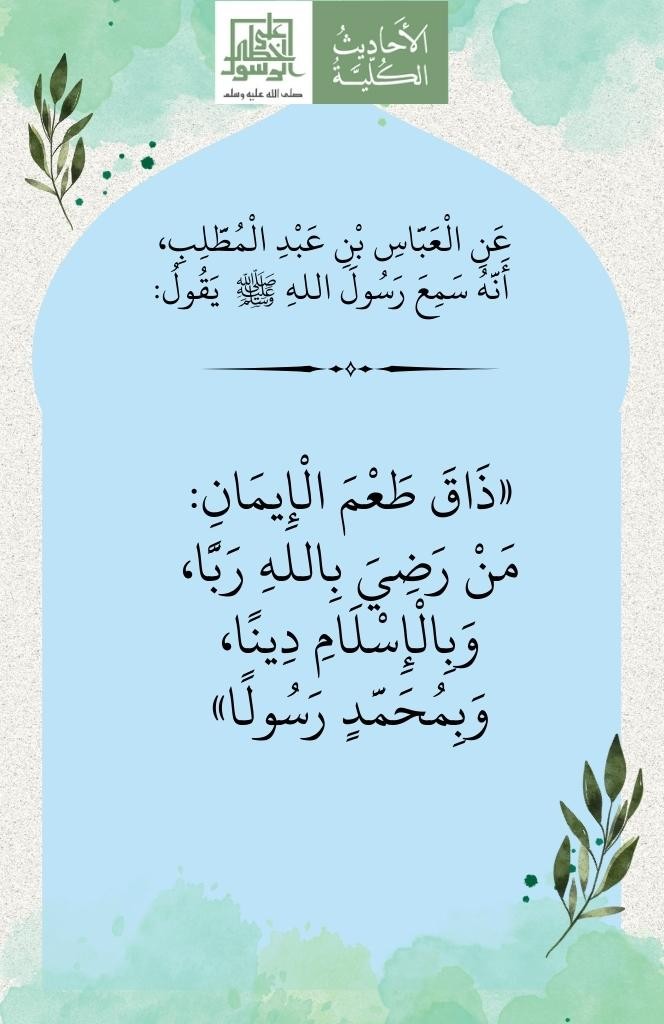 الأَحَادِيثُ
الكُلِّيَّةُ
على
خطى
الرسول
صلى الله عليه وسلم
عَنِ الْعَبَّاسِ بْنِ عَبْدِ الْمُطَّلِبِ،
أَنَّهُ سَمِعَ رَسُولَ اللهِ ﷺ يَقُولُ:
«ذَاقَ طَعْمَ الْإِيمَانِ:
مَنْ رَضِيَ بِاللهِ رَبًّا،
وَبِالْإِسْلَامِ دِينًا،
وَبِمُحَمَّدٍ رَسُولًا»